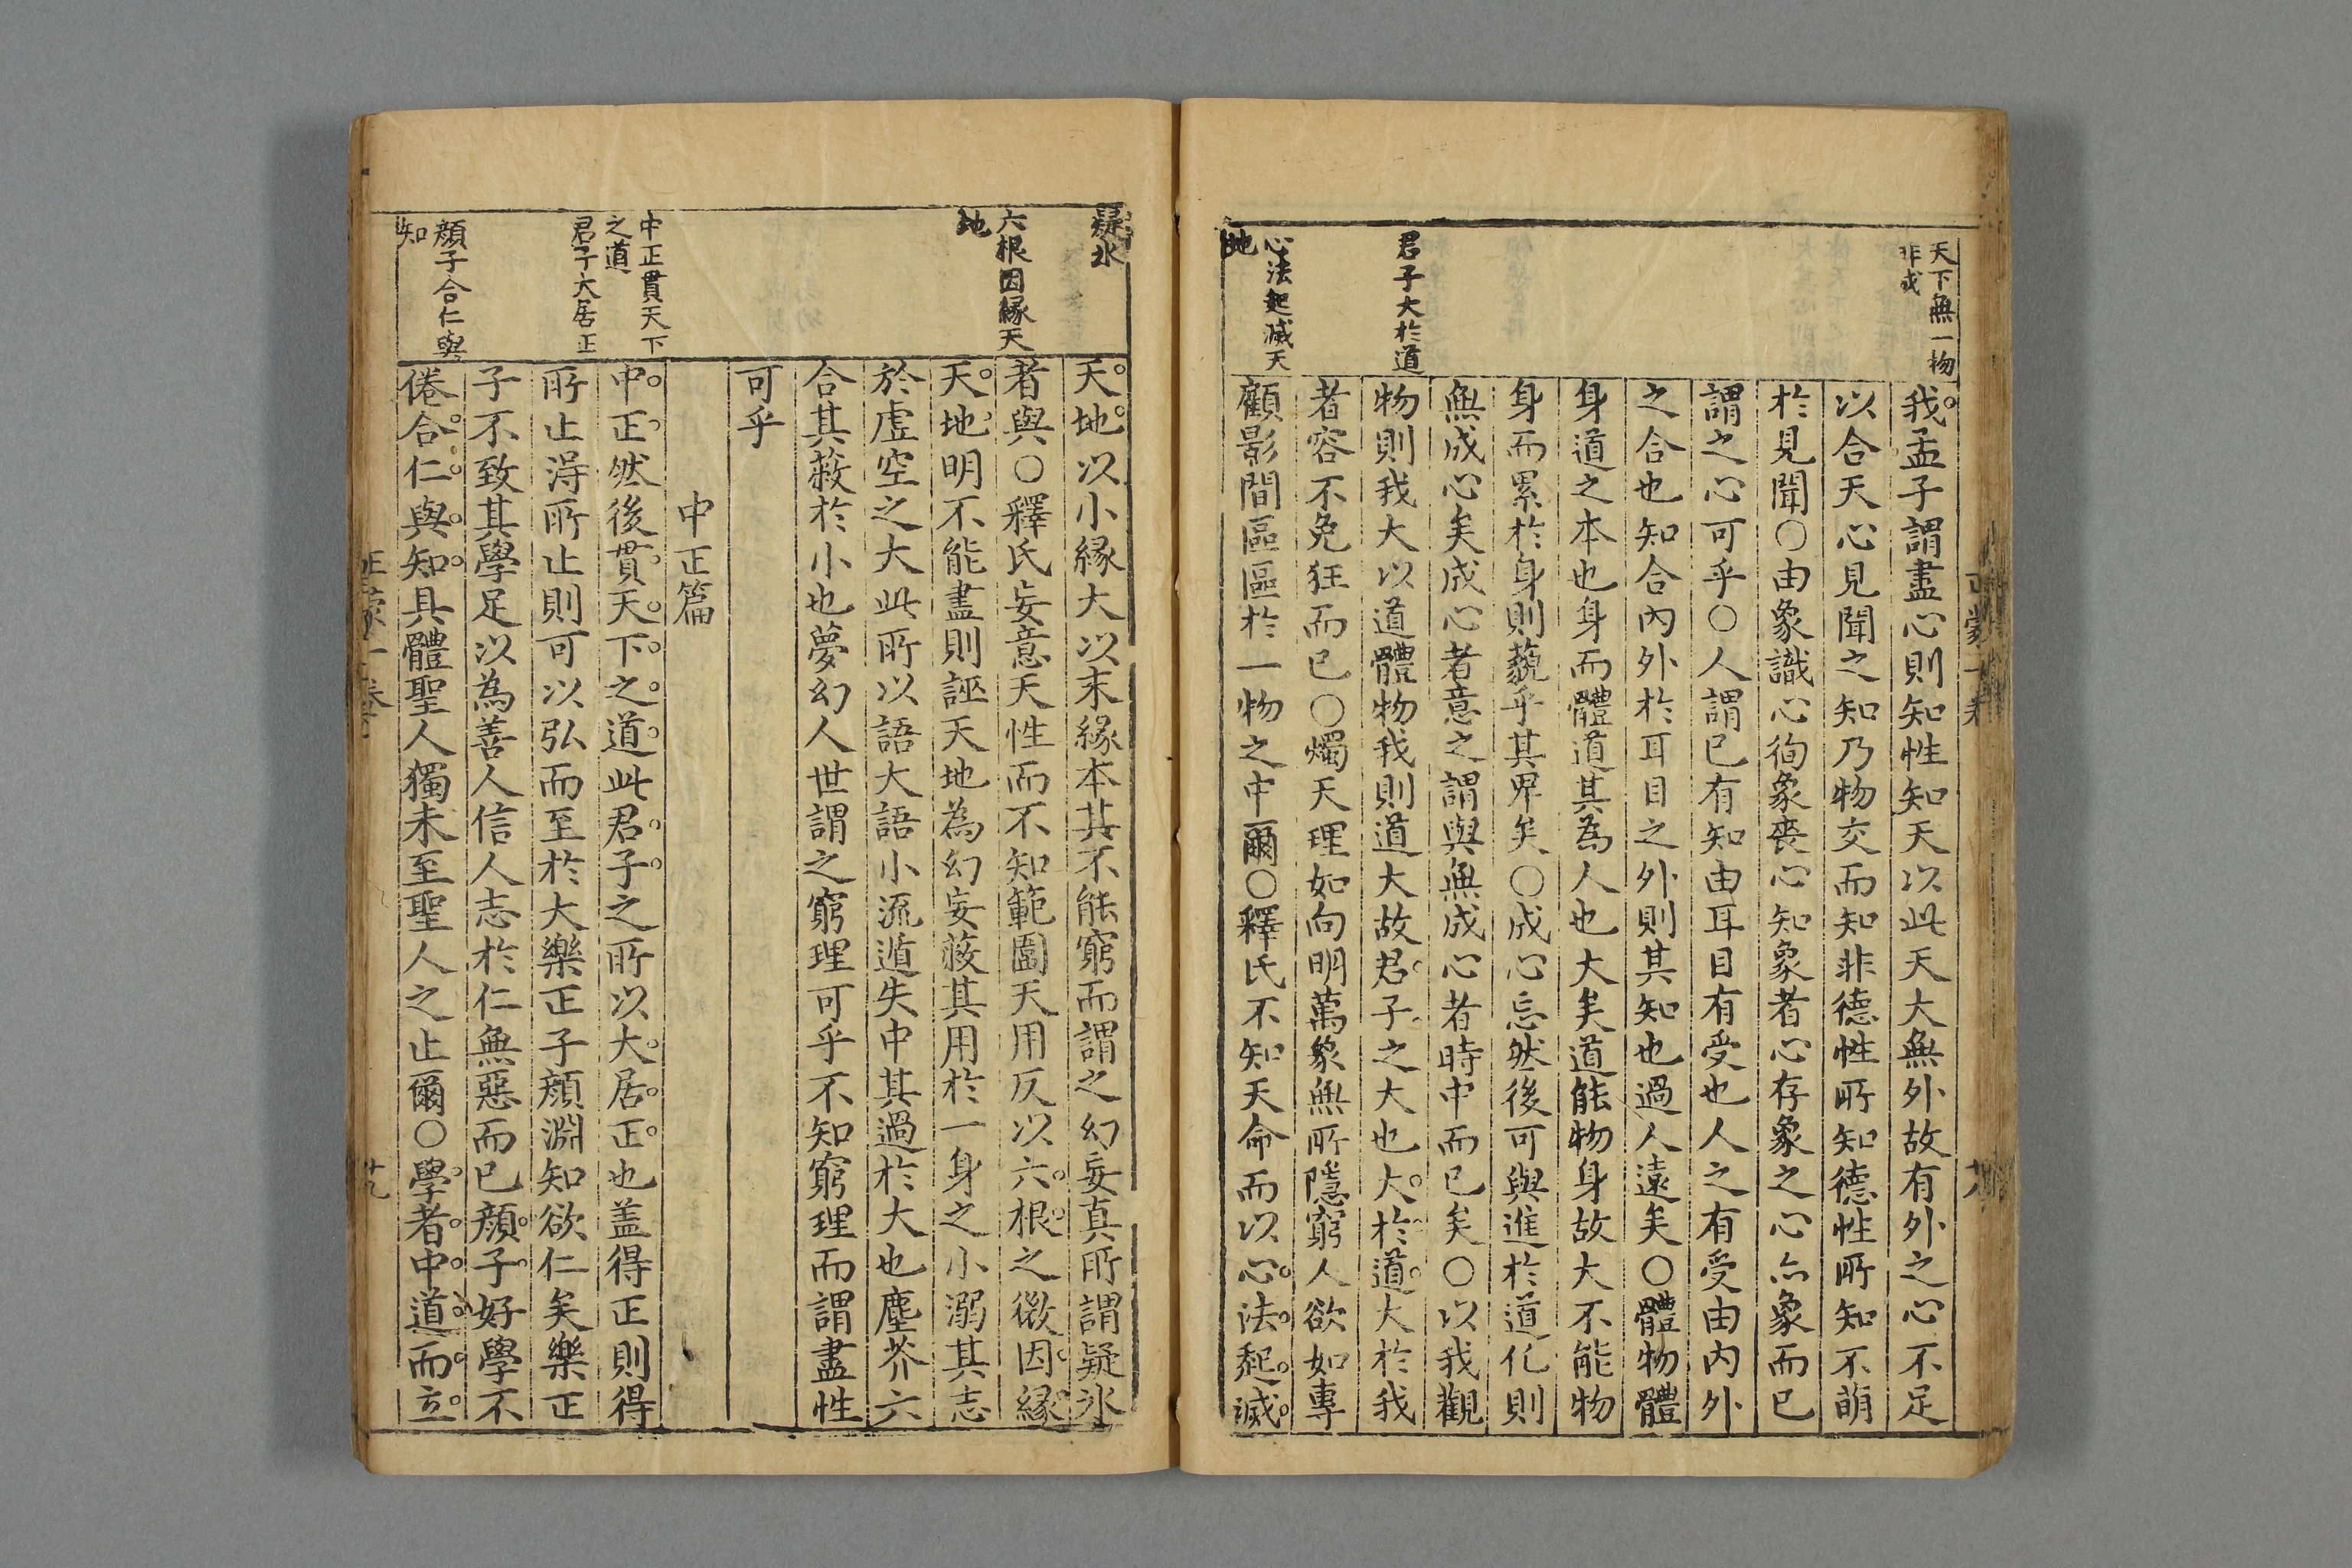 天下無一物
非我
君子大於道
心法起滅天
地
我孟子謂盡心則知性知天以此天大無外故有外之心不足
以合天心見聞之知乃物交而知非德性所知德性所知不萌
於見聞○由象識心徇象喪心知象者心存象之心亦象而已
謂之心可乎○人謂已有知由耳目有受也人之有受由内外
之合也知合內外於耳目之外則其知也過人遠矣○體物體
身道之本也身而體道其為人也大矣道能物身故大不能物
身而累於身則藐乎其卑矣○成心忘然後可與進於道化則
無成心矣成心者意之謂與無成心者時中而已矣○以我觀
物則我大以道體物我則道大故君子之大也大於道大於我
者容不免狂而已○燭天理如向明萬象無所隱窮人欲如專
顧影間區區於一物之中爾○釋氏不知天命而以心法起滅
疑冰
六根因緣天
地
中正貫天下
之道
君子大居正
顏子合仁與
知
天地以小緣大以末緣本其不能窮而謂之幻妄真所謂疑冰
者與○釋氏妄意天性而不知範圍天用反以六根之微因緣
天地明不能盡則誣天地為幻妄蔽其用於一身之小溺其志
於虛空之大此所以語大語小流遁失中其過於大也塵芥六
合其蔽於小也夢幻人世謂之窮理可乎不知窮理而謂盡性
可乎
中正篇
中正然後貫天下之道此君子之所以大居正也盖得正則得
所止得所止則可以弘而至於大樂正子顏淵知欲仁矣樂正
子不致其學足以為善人信人志於仁無惡而已顏子好學不
倦合仁與知具體聖人獨未至聖人之止爾○學者中道而立
正蒙一卷
廿九